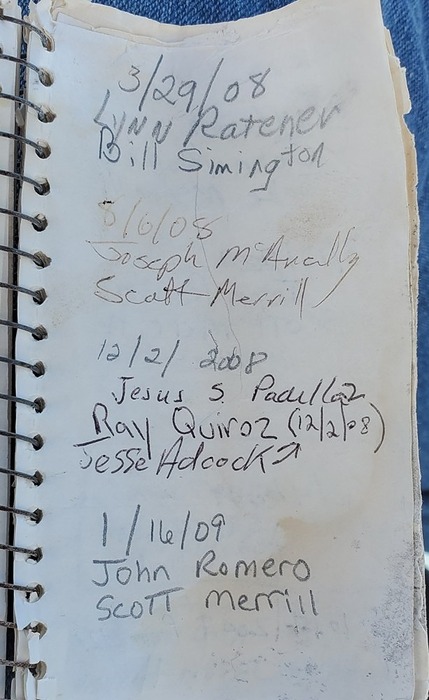 3/29/08
Lynn Ratener
Bill Simington
8/6/08
Joseph McAnally
Scott Merrill
12/2/2008
Jesus S. Padilla
Ray Quiroz (12/2/08)
Jesse Adcock ↗
1/16/09
John Romero
Scott Merrill